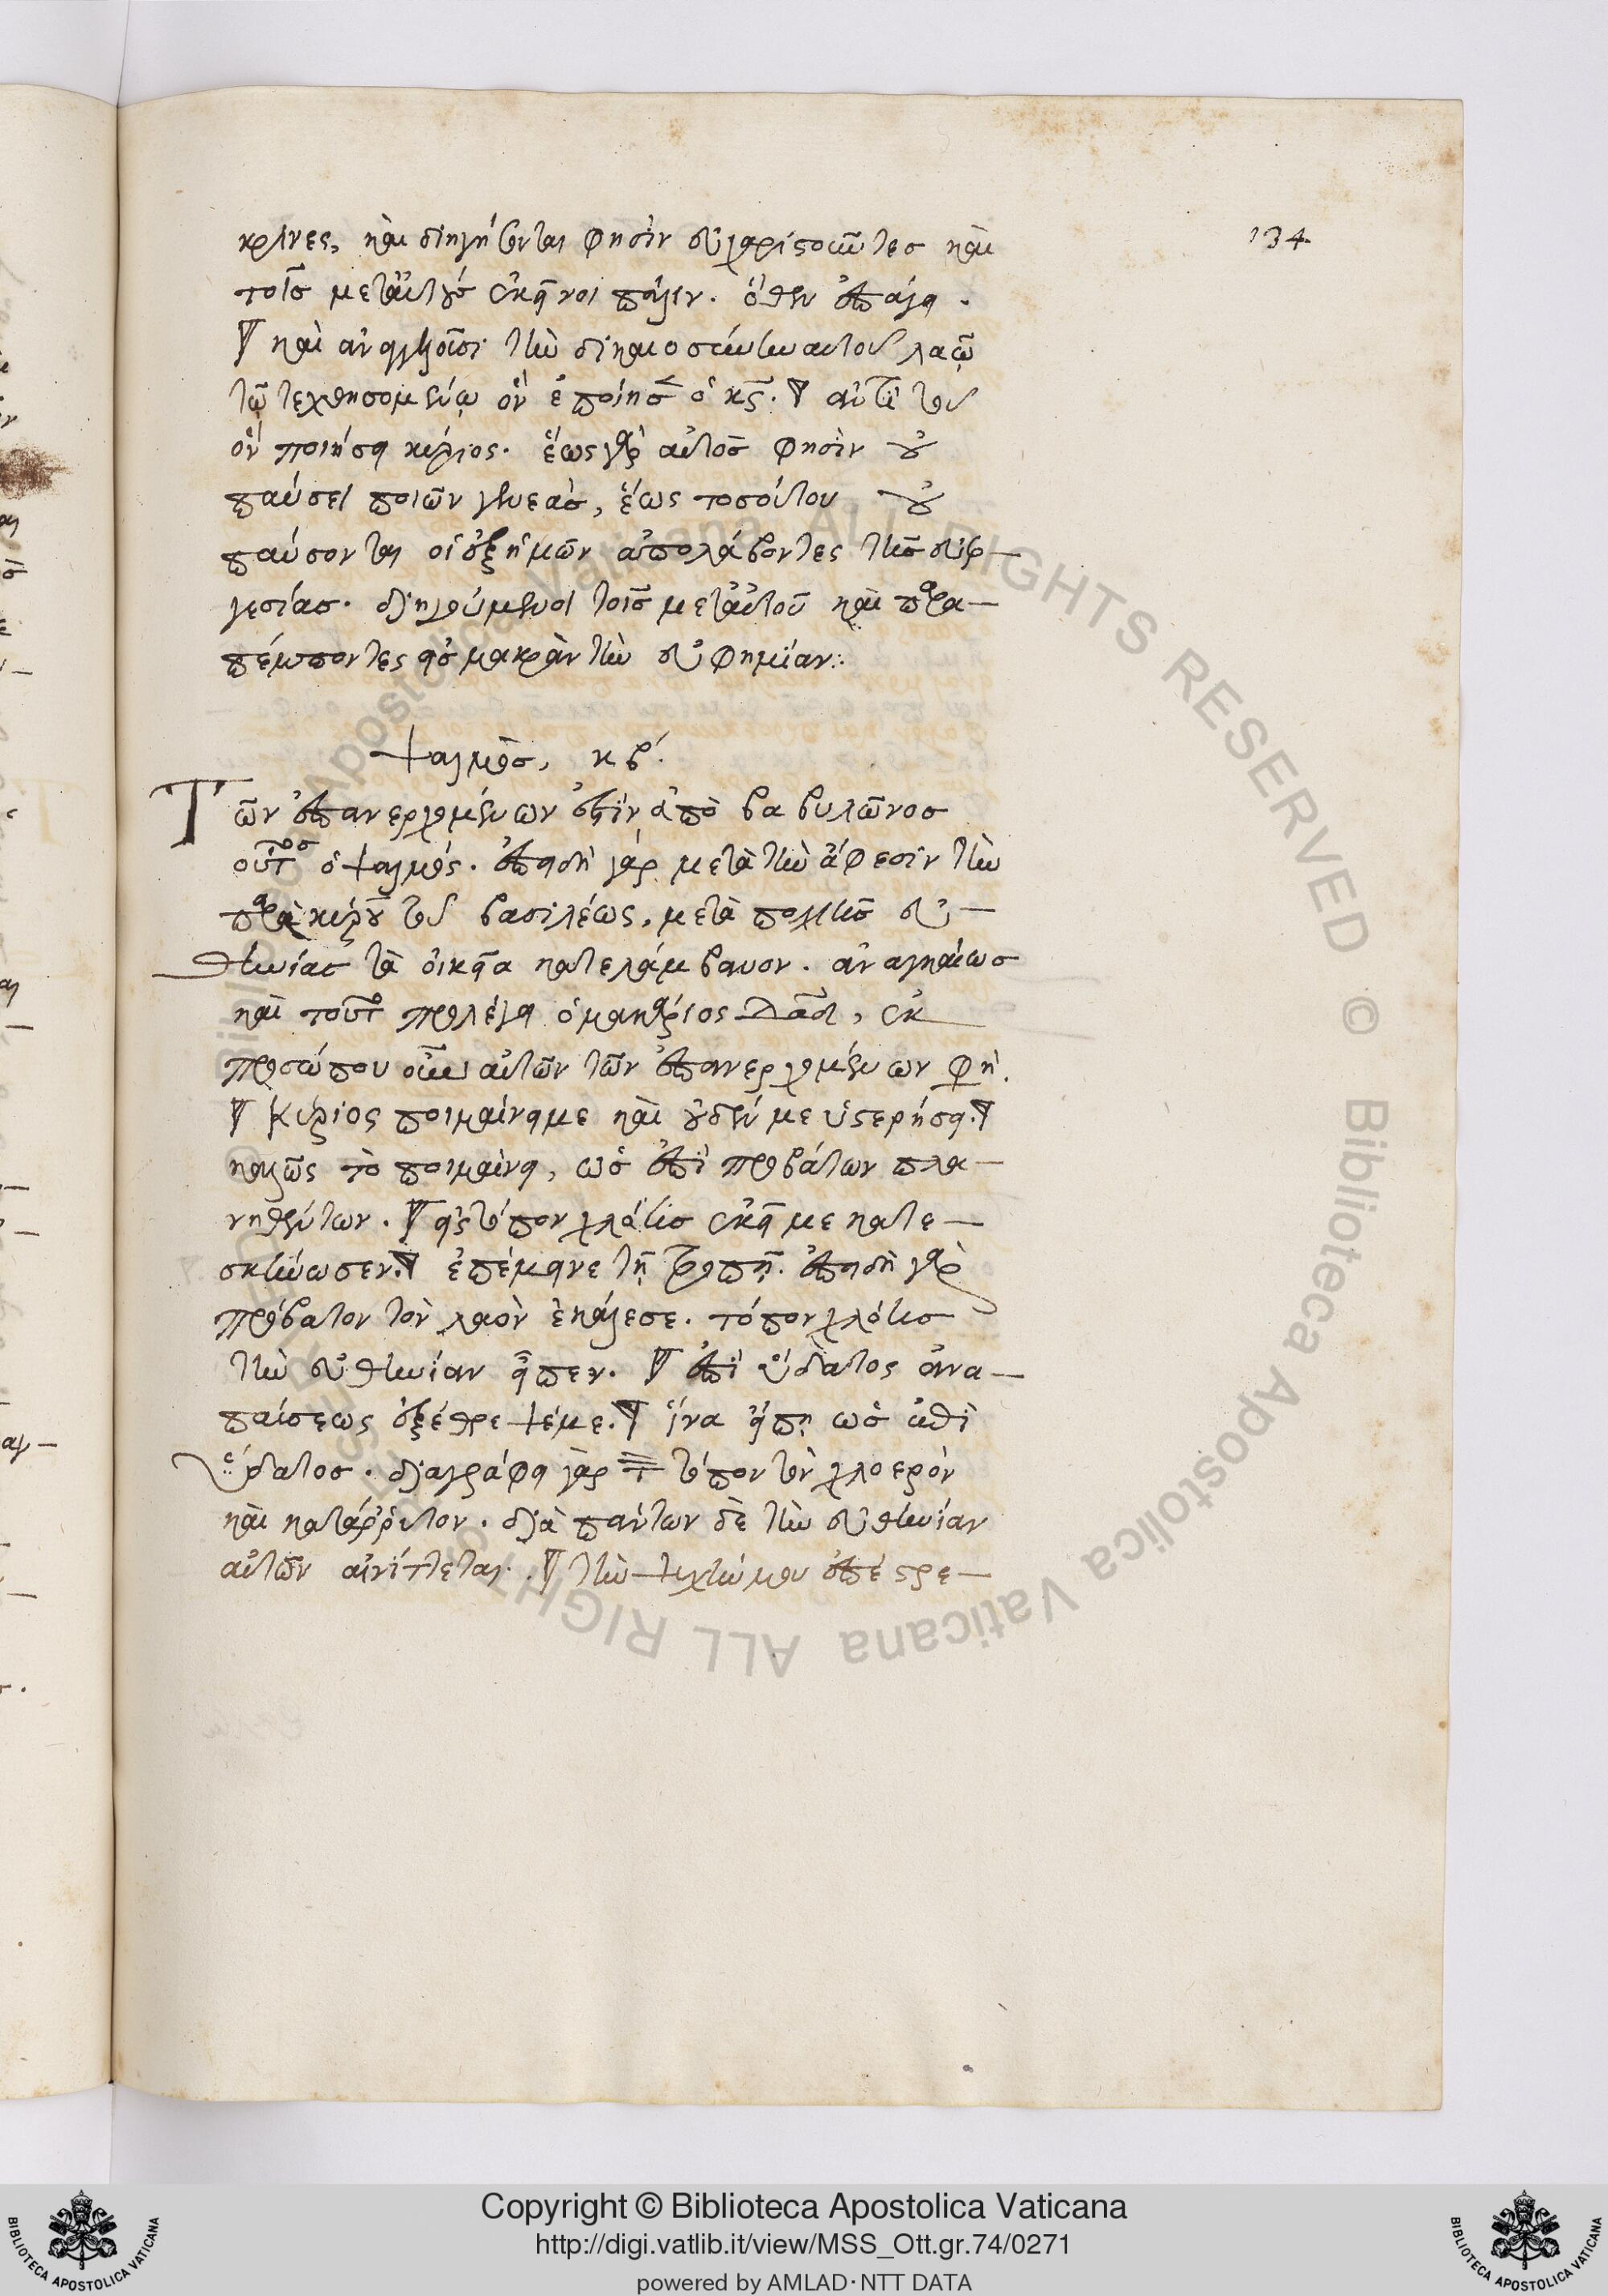 134
κρῖνες, καὶ διηγήσονται φησὶν εὐχαριστοῦντες καὶ
τοῖς μετ' αὐτοὺς ἐκεῖνοι πάλιν. ὅθεν ἐπάγει.
καὶ ἀναγγελοῦσι τὴν δικαιοσύνην αὐτοῦ λαῷ
τῷ τεχθησομένῳ ὃν ἐποίησεν ὁ κς. ἀντὶ τοῦ
ὃν ποιήσει κύριος. ἕως γὰρ αὐτὸς φησὶν οὐ
παύσει ποιῶν γενεάς, ἕως τοσούτου οὐ
παύσονται οἱ ἐξ ἡμῶν ἀπολάβοντες τῆς εὐερ–
γεσίας. διηγούμενοι τοῖς μετ' αὐτοῦ καὶ παρα–
πέμποντες εἰς μακρὰν τὴν εὐφημίαν:
ψαλμὸς, κβ΄.
Τῶν ἐπανερχομένων ἐστὶν ἀπὸ βαβυλῶνος
οὗτος ὁ ψαλμός. ἐπειδὴ γάρ μετὰ τὴν ἄφεσιν τὴν
παρὰ κύρου τοῦ βασιλέως, μετὰ πολλῆς εὐ–
θηνίας τὰ οἰκεῖα κατελάμβανον. ἀναγκαίως
καὶ τοῦτο προλέγει ὁ μακάριος δαδ, ἐκ
προσώπου οὖν αὐτῶν τῶν ἐπανερχομένων φη.
Κύριος ποιμαίνει με καὶ οὐδέν με ὑστερήσει.
καλῶς τὸ ποιμαίνει, ὡς ἐπὶ προβάτων πλα–
νηθέντων. εἰς τόπον χλόης ἐκεῖ με κατε–
σκήνωσεν. ἐπέμεινε τῇ τροπῇ. ἐπειδὴ γὰρ
πρόβατον τὸν λαὸν ἐκάλεσε. τόπον χλόης
τὴν εὐθηνίαν εἶπεν. ἐπὶ ὕδατος ἀνα–
παύσεως ἐξέθρεψέ με. ἵνα εἴπῃ ὡς ἐπὶ
ὕδατος. διαγράφει γὰρ τόπον τὸν χλοερὸν
καὶ κατάρρυτον. διὰ πάντων δὲ τὴν εὐθηνίαν
αὐτῶν αἰνίττεται. τὴν ψυχήν μου ἐπέστρε–
Copyright © Biblioteca Apostolica Vaticana
http://digi.vatlib.it/view/MSS_Ott.gr.74/0271
powered by AMLAD·NTT DATA